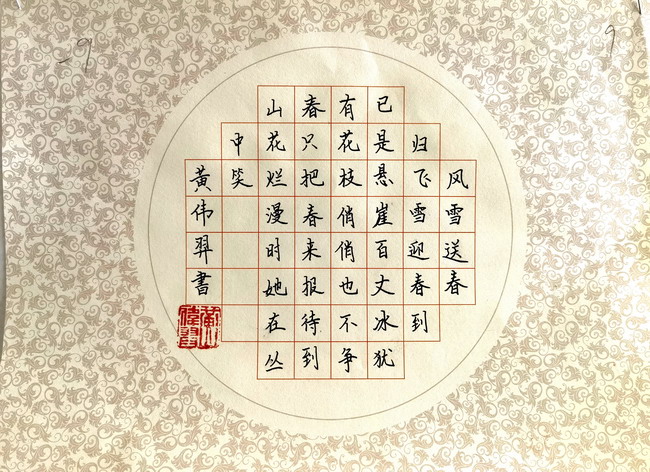 风雪送春
归飞雪迎春到
已是悬崖百丈冰犹
有花枝俏俏也不争
春只把春来报待到
山花烂漫时她在丛
中笑
黃伟羿書